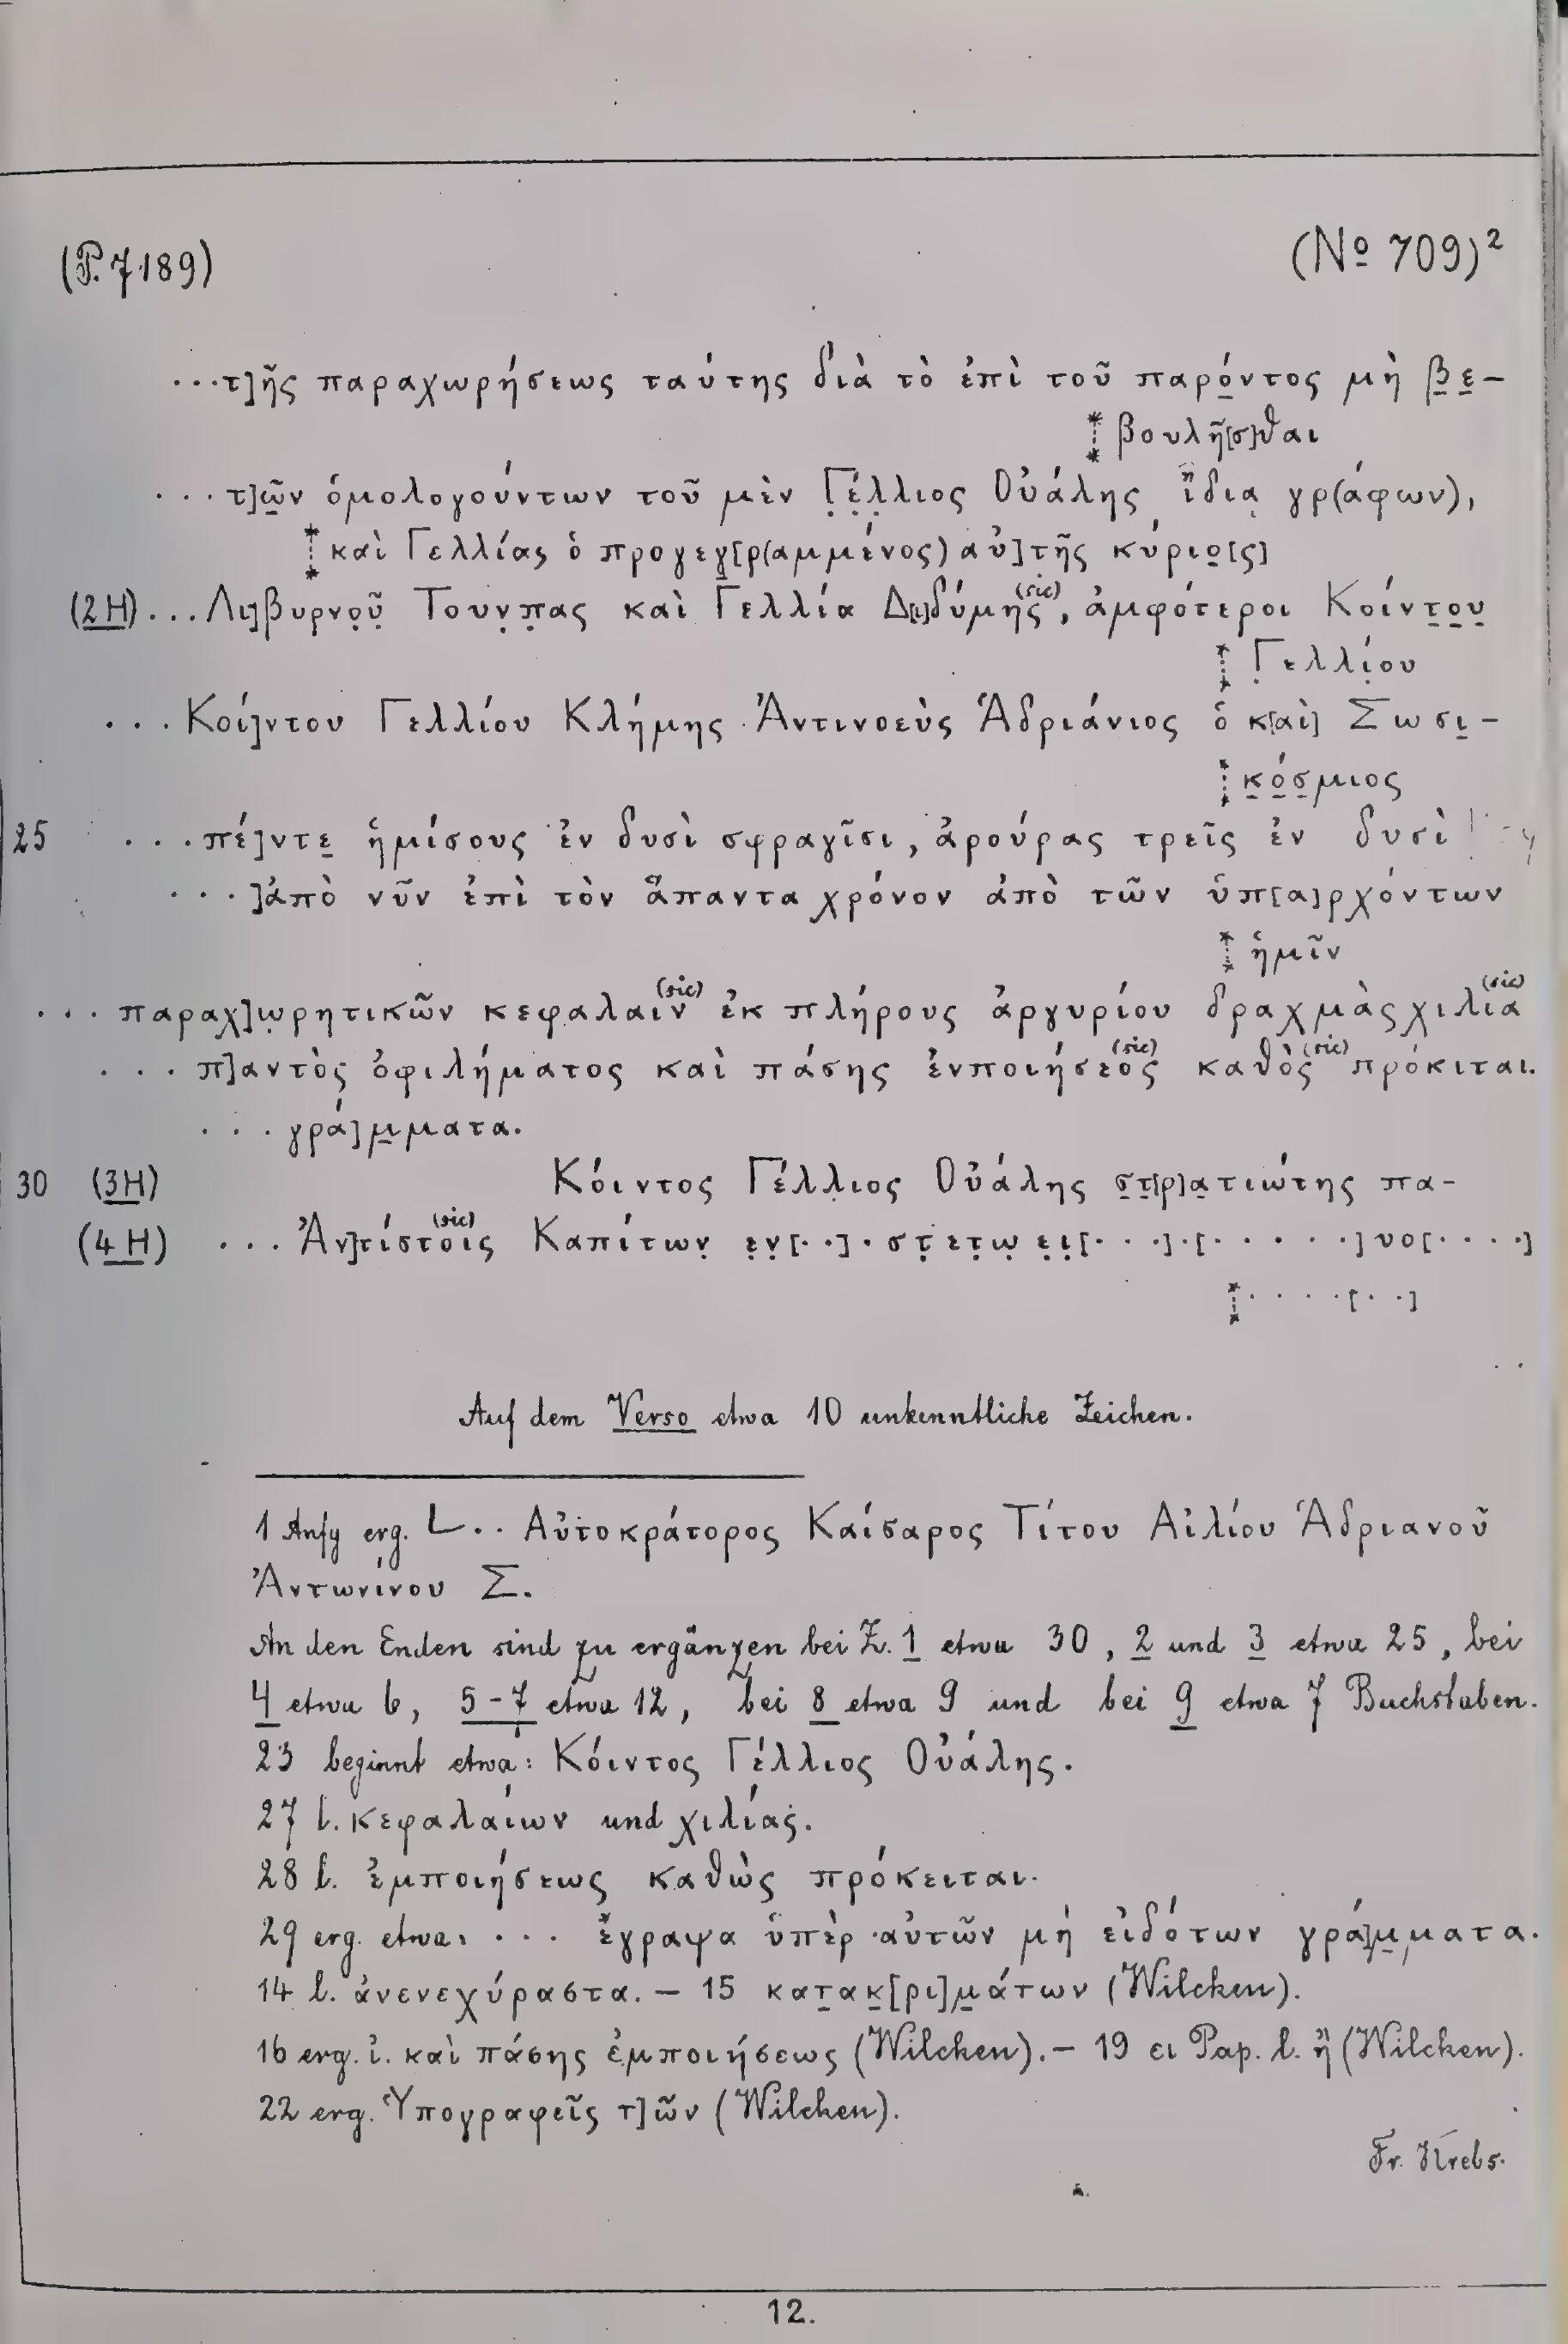 (P. 7189)
(No 709)²
...τ]ῆς παραχωρήσεως ταύτης διὰ τὸ ἐπὶ τοῦ παρόντος μὴ βε-
βουλῆ[σ]θαι
...τ]ῶν ὁμολογούντων τοῦ μὲν Γέλλιος Οὐάλης ἴδια γρ(άφων),
καὶ Γελλίας ὁ προγεγ[ρ(αμμένος) αὐ]τῆς κύριο[ς]
(2H) ...Λι]βυρνοῦ Τουνπας καὶ Γελλία Δ[ι]δύμης (sic), ἀμφότεροι Κοίντου
Γελλίου
...Κοί]ντου Γελλίου Κλήμης Ἀντινοεὺς Ἁδριάνιος ὁ κ[αὶ] Σωσι-
κόσμιος
25 ...πέ]ντε ἡμίσους ἐν δυσὶ σφραγῖσι, ἀρούρας τρεῖς ἐν δυσὶ
...]ἀπὸ νῦν ἐπὶ τὸν ἅπαντα χρόνον ἀπὸ τῶν ὑπ[α]ρχόντων
ἡμῖν
...παραχ]ωρητικῶν κεφαλαίν (sic) ἐκ πλήρους ἀργυρίου δραχμὰς χιλία (sic)
...π]αντὸς ὀφιλήματος καὶ πάσης ἐνποιήσεος (sic) καθὸς (sic) πρόκιται.
...γρά]μματα.
30 (3H) Κόιντος Γέλλιος Οὐάλης στ[ρ]ατιώτης πα-
(4H) ...Ἀν]τίστοις (sic) Καπίτων εν[··]·στετω ει[···]·[·····]υο[····]
····[··]
Auf dem Verso etwa 10 unkenntliche Zeichen.
1 Anfg erg. L·· Αὐτοκράτορος Καίσαρος Τίτου Αἰλίου Ἁδριανοῦ
Ἀντωνίνου Σ.
An den Enden sind zu ergänzen bei Z. 1 etwa 30, 2 und 3 etwa 25, bei
4 etwa 6, 5-7 etwa 12, bei 8 etwa 9 und bei 9 etwa 7 Buchstaben.
23 beginnt etwa: Κόιντος Γέλλιος Οὐάλης.
27 l. κεφαλαίων und χιλίας.
28 l. ἐμποιήσεως καθὼς πρόκειται.
29 erg. etwa: ... ἔγραψα ὑπὲρ αὐτῶν μὴ εἰδότων γρά]μματα.
14 l. ἀνενεχύραστα. - 15 κατακ[ρι]μάτων (Wilcken).
16 erg. ἰ. καὶ πάσης ἐμποιήσεως (Wilcken). - 19 ει Pap. l. ἢ (Wilcken).
22 erg. Ὑπογραφεῖς τ]ῶν (Wilcken).
Fr. Krebs.
12.